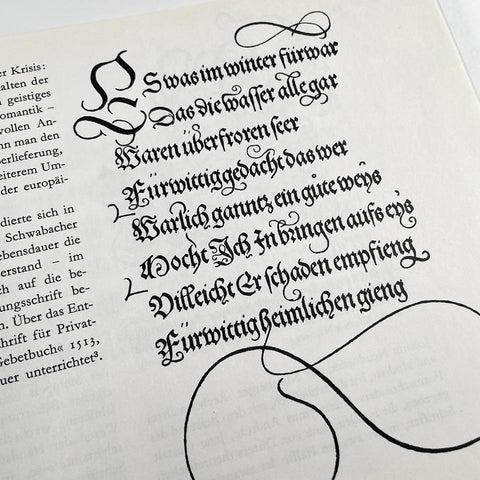 er Krisis:
alten der
geistiges
omantik –
vollen An-
nn man den
erlieferung,
eiterem Um-
der europäi-
dierte sich in
Schwabacher
ebensdauer die
erstand – im
ch auf die be-
ungsschrift be-
n. Über das Ent-
chrift für Privat-
Gebetbuch« 1513,
uer unterrichtet³.
ES was im winter fürwar
Das die wasser alle gar
Waren überfroren seer
Fürwittig gedacht das wer
Warlich ganntz ein gůte weys
Mocht Ich In bringen aufs eys
Villeicht Er schaden empfieng
Fürwittig heimlichen gieng